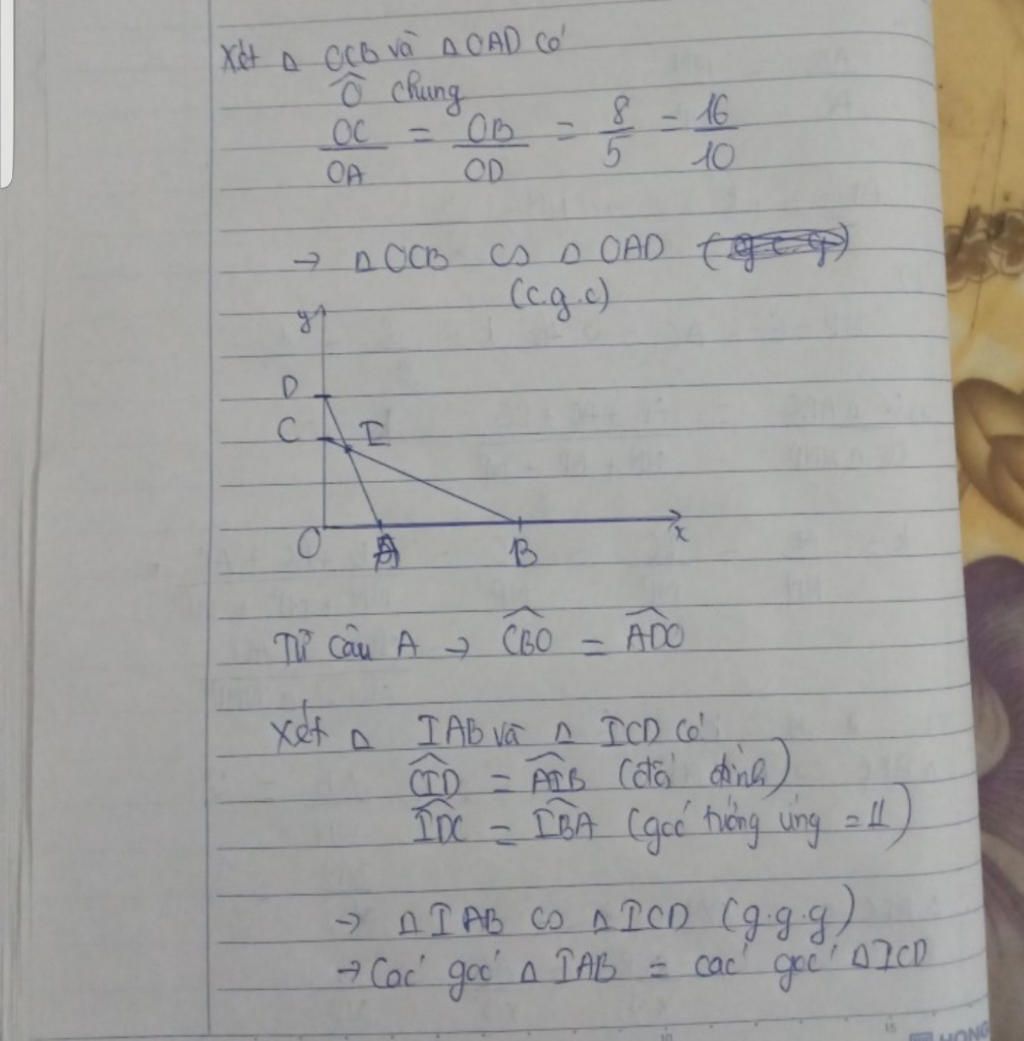 Xét Δ OCB và Δ OAD có
Ô chung
OC/OA = OB/OD = 8/5 = 16/10
→ Δ OCB ∽ Δ OAD
(c.g.c)
y
D
C I
O A B x
Từ câu A → CBO = ADO
Xét Δ IAB và Δ ICD có
CID = AIB (đối đỉnh)
IDC = IBA (góc tương ứng = )
→ Δ IAB ∽ Δ ICD (g.g.g)
→ Các góc Δ IAB = các góc Δ ICD
15
10
HONG